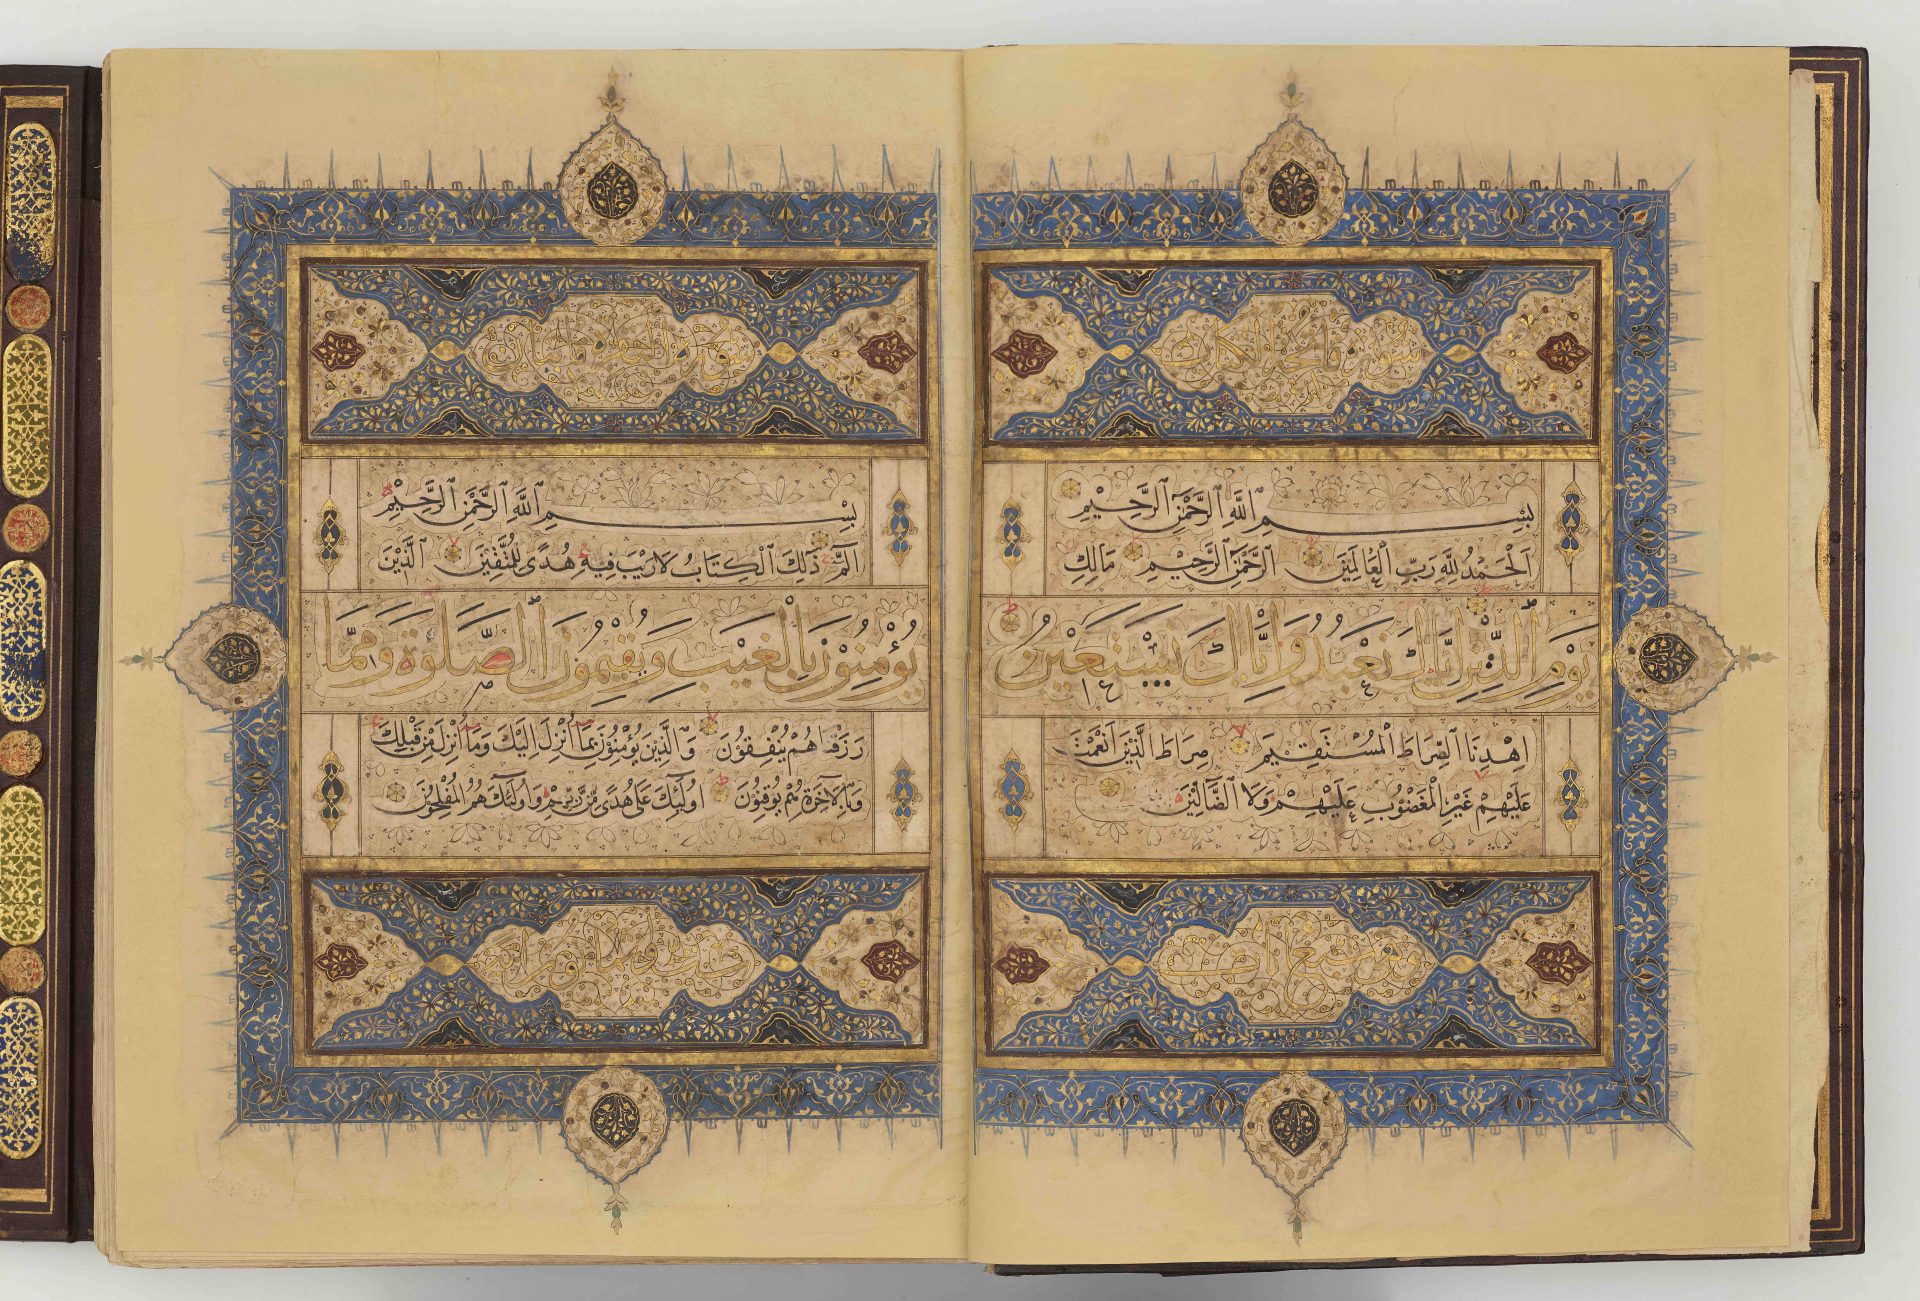 سورة فاتحة الكتاب
بِسْمِ ٱللَّهِ ٱلرَّحْمٰنِ ٱلرَّحِيْمِ
اَلْحَمْدُ لِلّٰهِ رَبِّ الْعَالَمِيْنَ الرَّحْمٰنِ الرَّحِيْمِ مَالِكِ
يَوْمِ الدِّيْنِ اِيَّاكَ نَعْبُدُ وَاِيَّاكَ نَسْتَعِيْنُ
اِهْدِنَا الصِّرَاطَ الْمُسْتَقِيْمَ صِرَاطَ الَّذِيْنَ اَنْعَمْتَ
عَلَيْهِمْ غَيْرِ الْمَغْضُوْبِ عَلَيْهِمْ وَلَا الضَّالِّيْنَ
سورة البقرة مايتان
بِسْمِ ٱللَّهِ ٱلرَّحْمٰنِ ٱلرَّحِيْمِ
الٓمّٓ ذٰلِكَ الْكِتَابُ لَا رَيْبَ فِيْهِ هُدًى لِلْمُتَّقِيْنَ الَّذِيْنَ
يُؤْمِنُوْنَ بِالْغَيْبِ وَيُقِيْمُوْنَ الصَّلٰوةَ وَمِمَّا
رَزَقْنَاهُمْ يُنْفِقُوْنَ وَالَّذِيْنَ يُؤْمِنُوْنَ بِمَآ اُنْزِلَ اِلَيْكَ وَمَآ اُنْزِلَ مِنْ قَبْلِكَ
وَبِالْاٰخِرَةِ هُمْ يُوْقِنُوْنَ اُولٰٓئِكَ عَلٰى هُدًى مِّنْ رَّبِّهِمْ وَاُولٰٓئِكَ هُمُ الْمُفْلِحُوْنَ